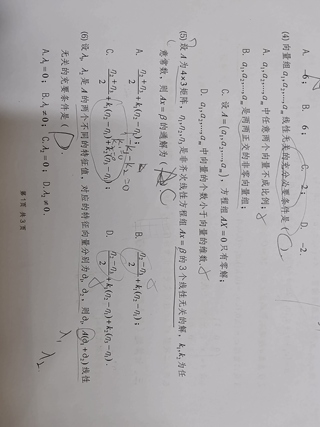 A. -6; B. 6; C. 2; D. -2
(4) 向量组 a₁,a₂,…,aₘ 线性无关的充分必要条件是 ( C
A. a₁,a₂,…,aₘ 中任意两个向量不成比例;
B. a₁,a₂,…,aₘ 是两两正交的非零向量组;
C. 设 A=(a₁,a₂,…,aₘ), 方程组 AX=0 只有零解;
D. a₁,a₂,…,aₘ 中向量的个数小于向量的维数
(5) 设 A 为 4×3 矩阵, η₁,η₂,η₃ 是非齐次线性方程组 Ax=β 的 3 个线性无关的解, k₁,k₂ 为任
意常数, 则 Ax=β 的通解为 ( C
A. (η₂+η₃)/2+k₁(η₂-η₁); B. (η₂-η₃)/2+k₁(η₂-η₁);
C. (η₂+η₃)/2+k₁(η₂-η₁)+k₂(η₃-η₁); D. (η₂-η₃)/2+k₁(η₂-η₁)+k₂(η₃-η₁).
(6) 设 λ₁, λ₂ 是 A 的两个不同的特征值, 对应的特征向量分别为 α₁, α₂, 则 α₁, A(α₁+α₂) 线性
无关的充要条件是 ( D ).
λ₁ λ₂
A. λ₁=0; B. λ₁≠0; C. λ₂=0; D. λ₂≠0.
第 1 页 共 3 页